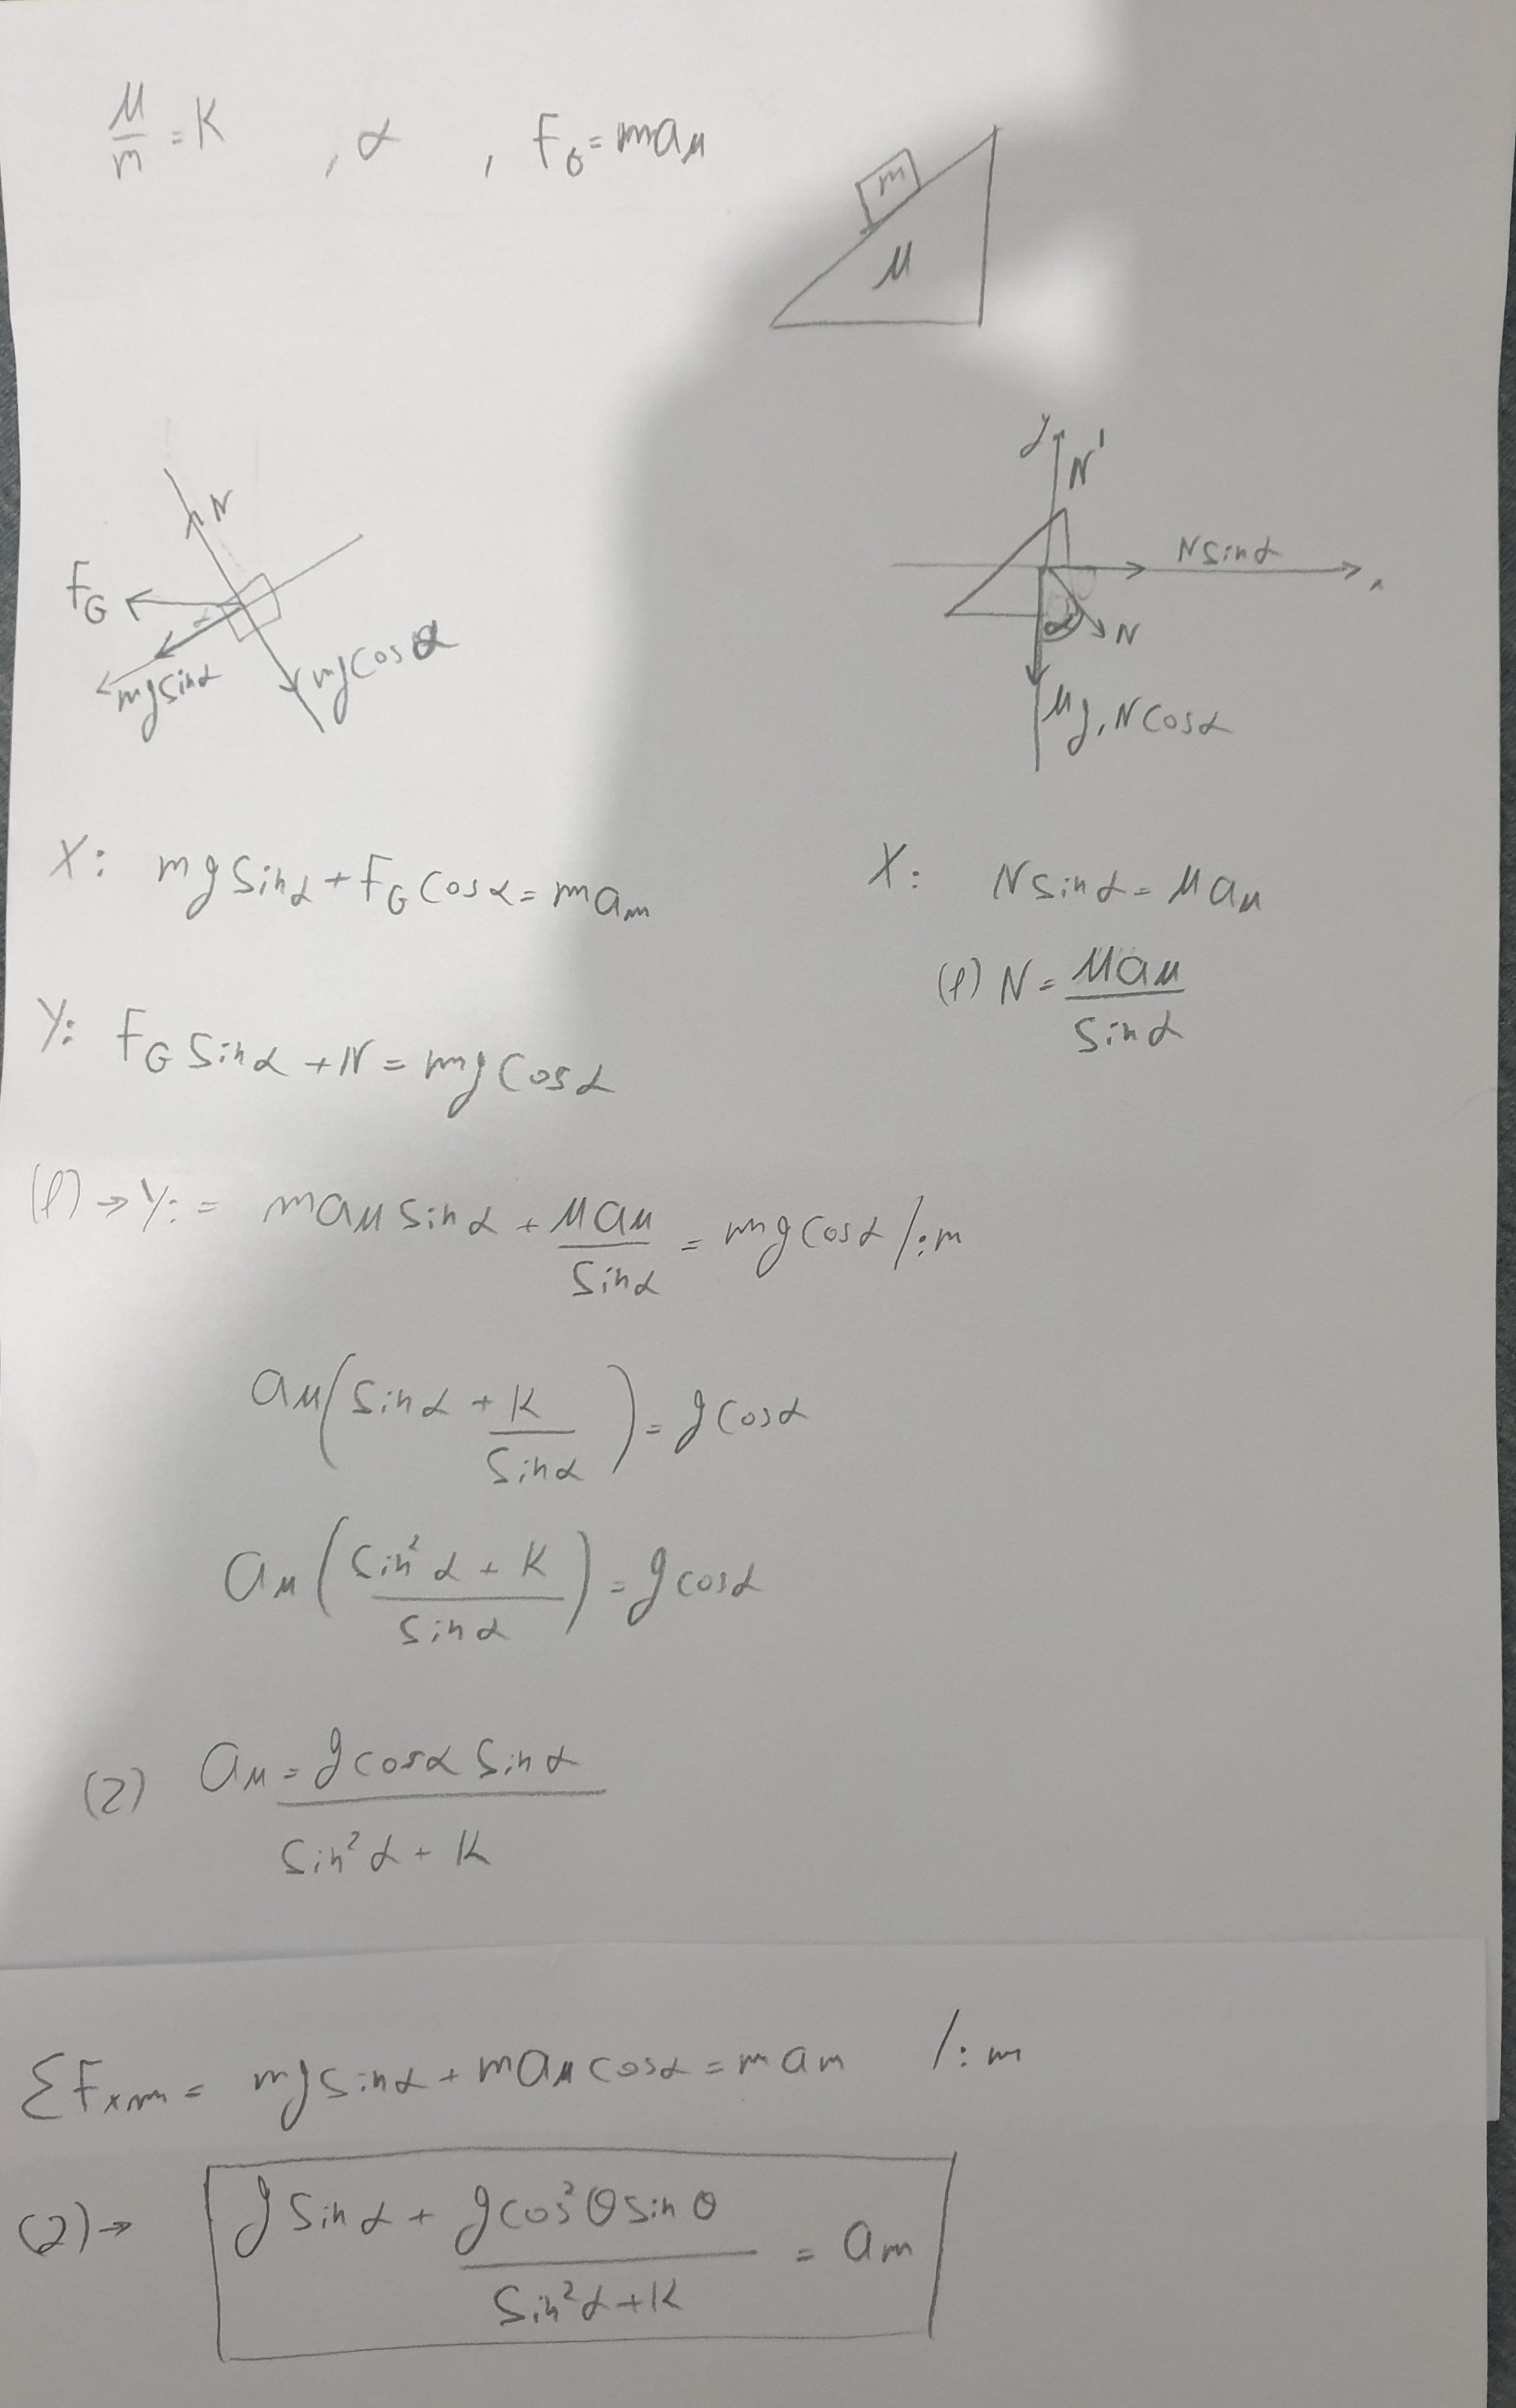 M/m = K , α , F_G = ma_M
m
M
N
F_G
mg sinα
mg cosα
y
N'
N sinα
x
α
N
Mg, N cosα
X: mg sinα + F_G cosα = ma_m
X: N sinα = Ma_M
(1) N = Ma_M / sinα
Y: F_G sinα + N = mg cosα
(1) → Y: = ma_M sinα + Ma_M / sinα = mg cosα /:m
a_M (sinα + K / sinα) = g cosα
a_M ((sin²α + K) / sinα) = g cosα
(2) a_M = g cosα sinα / (sin²α + K)
ΣF_xm = mg sinα + ma_M cosα = ma_m /:m
(2) → g sinα + g cos²θ sinθ / (sin²α + K) = a_m